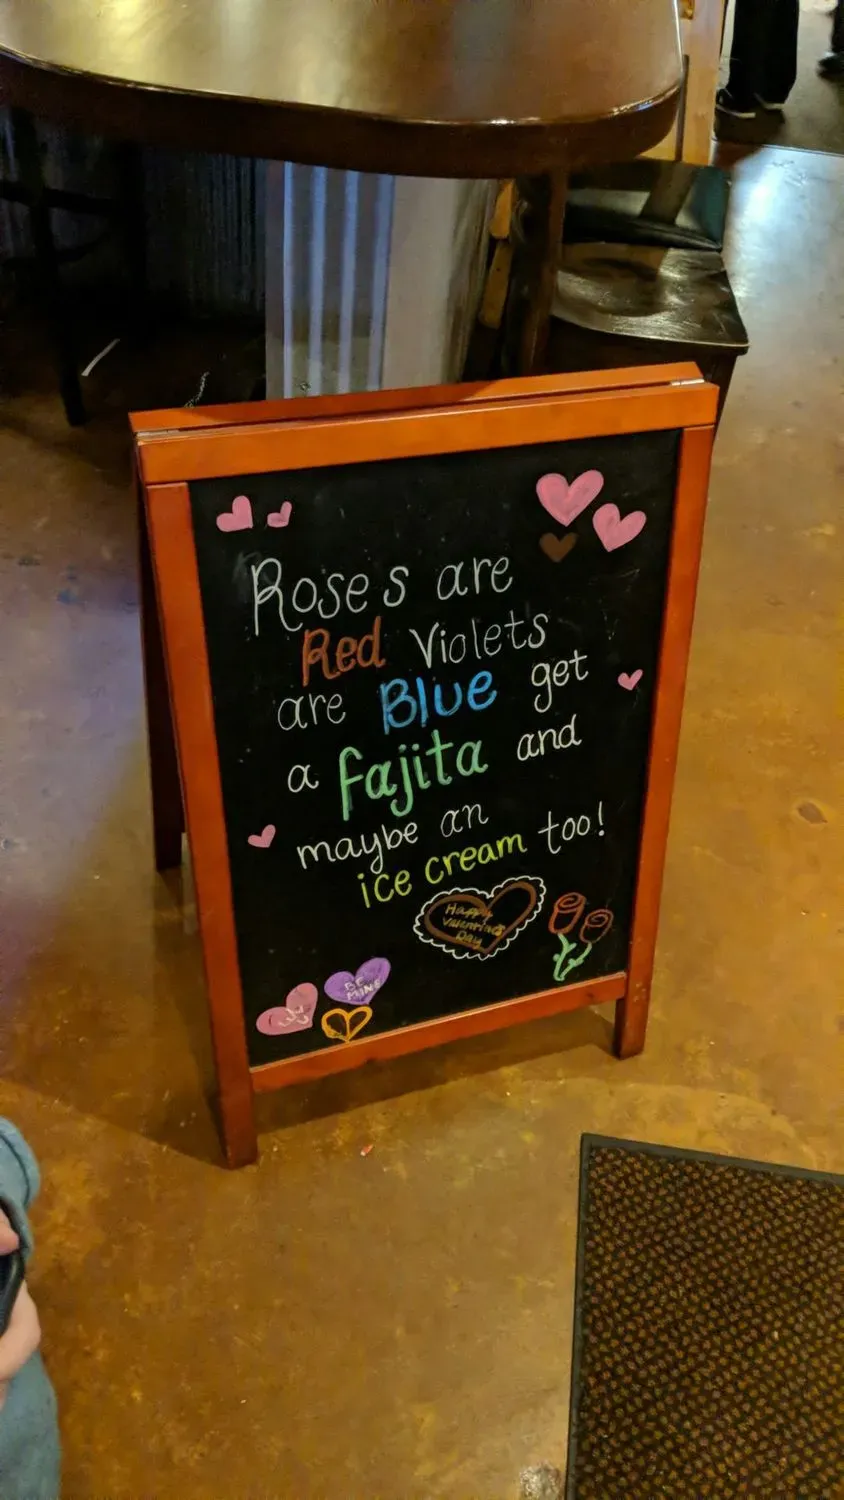 Roses are
Red Violets
are Blue get
a fajita and
maybe an
ice cream too!
Happy
Valentines
Day
BE
MINE